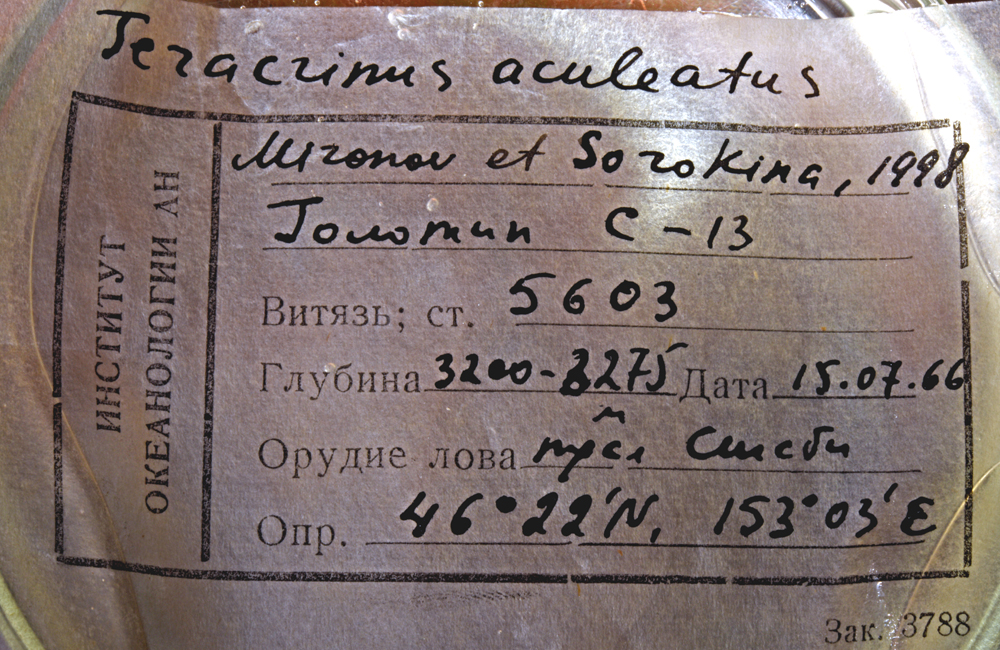 Teracrinus aculeatus
Mironov et Sorokina, 1998
Голотип С-13
Витязь; ст. 5603
Глубина 3200-3275 Дата 15.07.66
Орудие лова трал Сигсби
Опр. 46°22'N, 153°03'E
ИНСТИТУТ
ОКЕАНОЛОГИИ АН
Зак. 3788